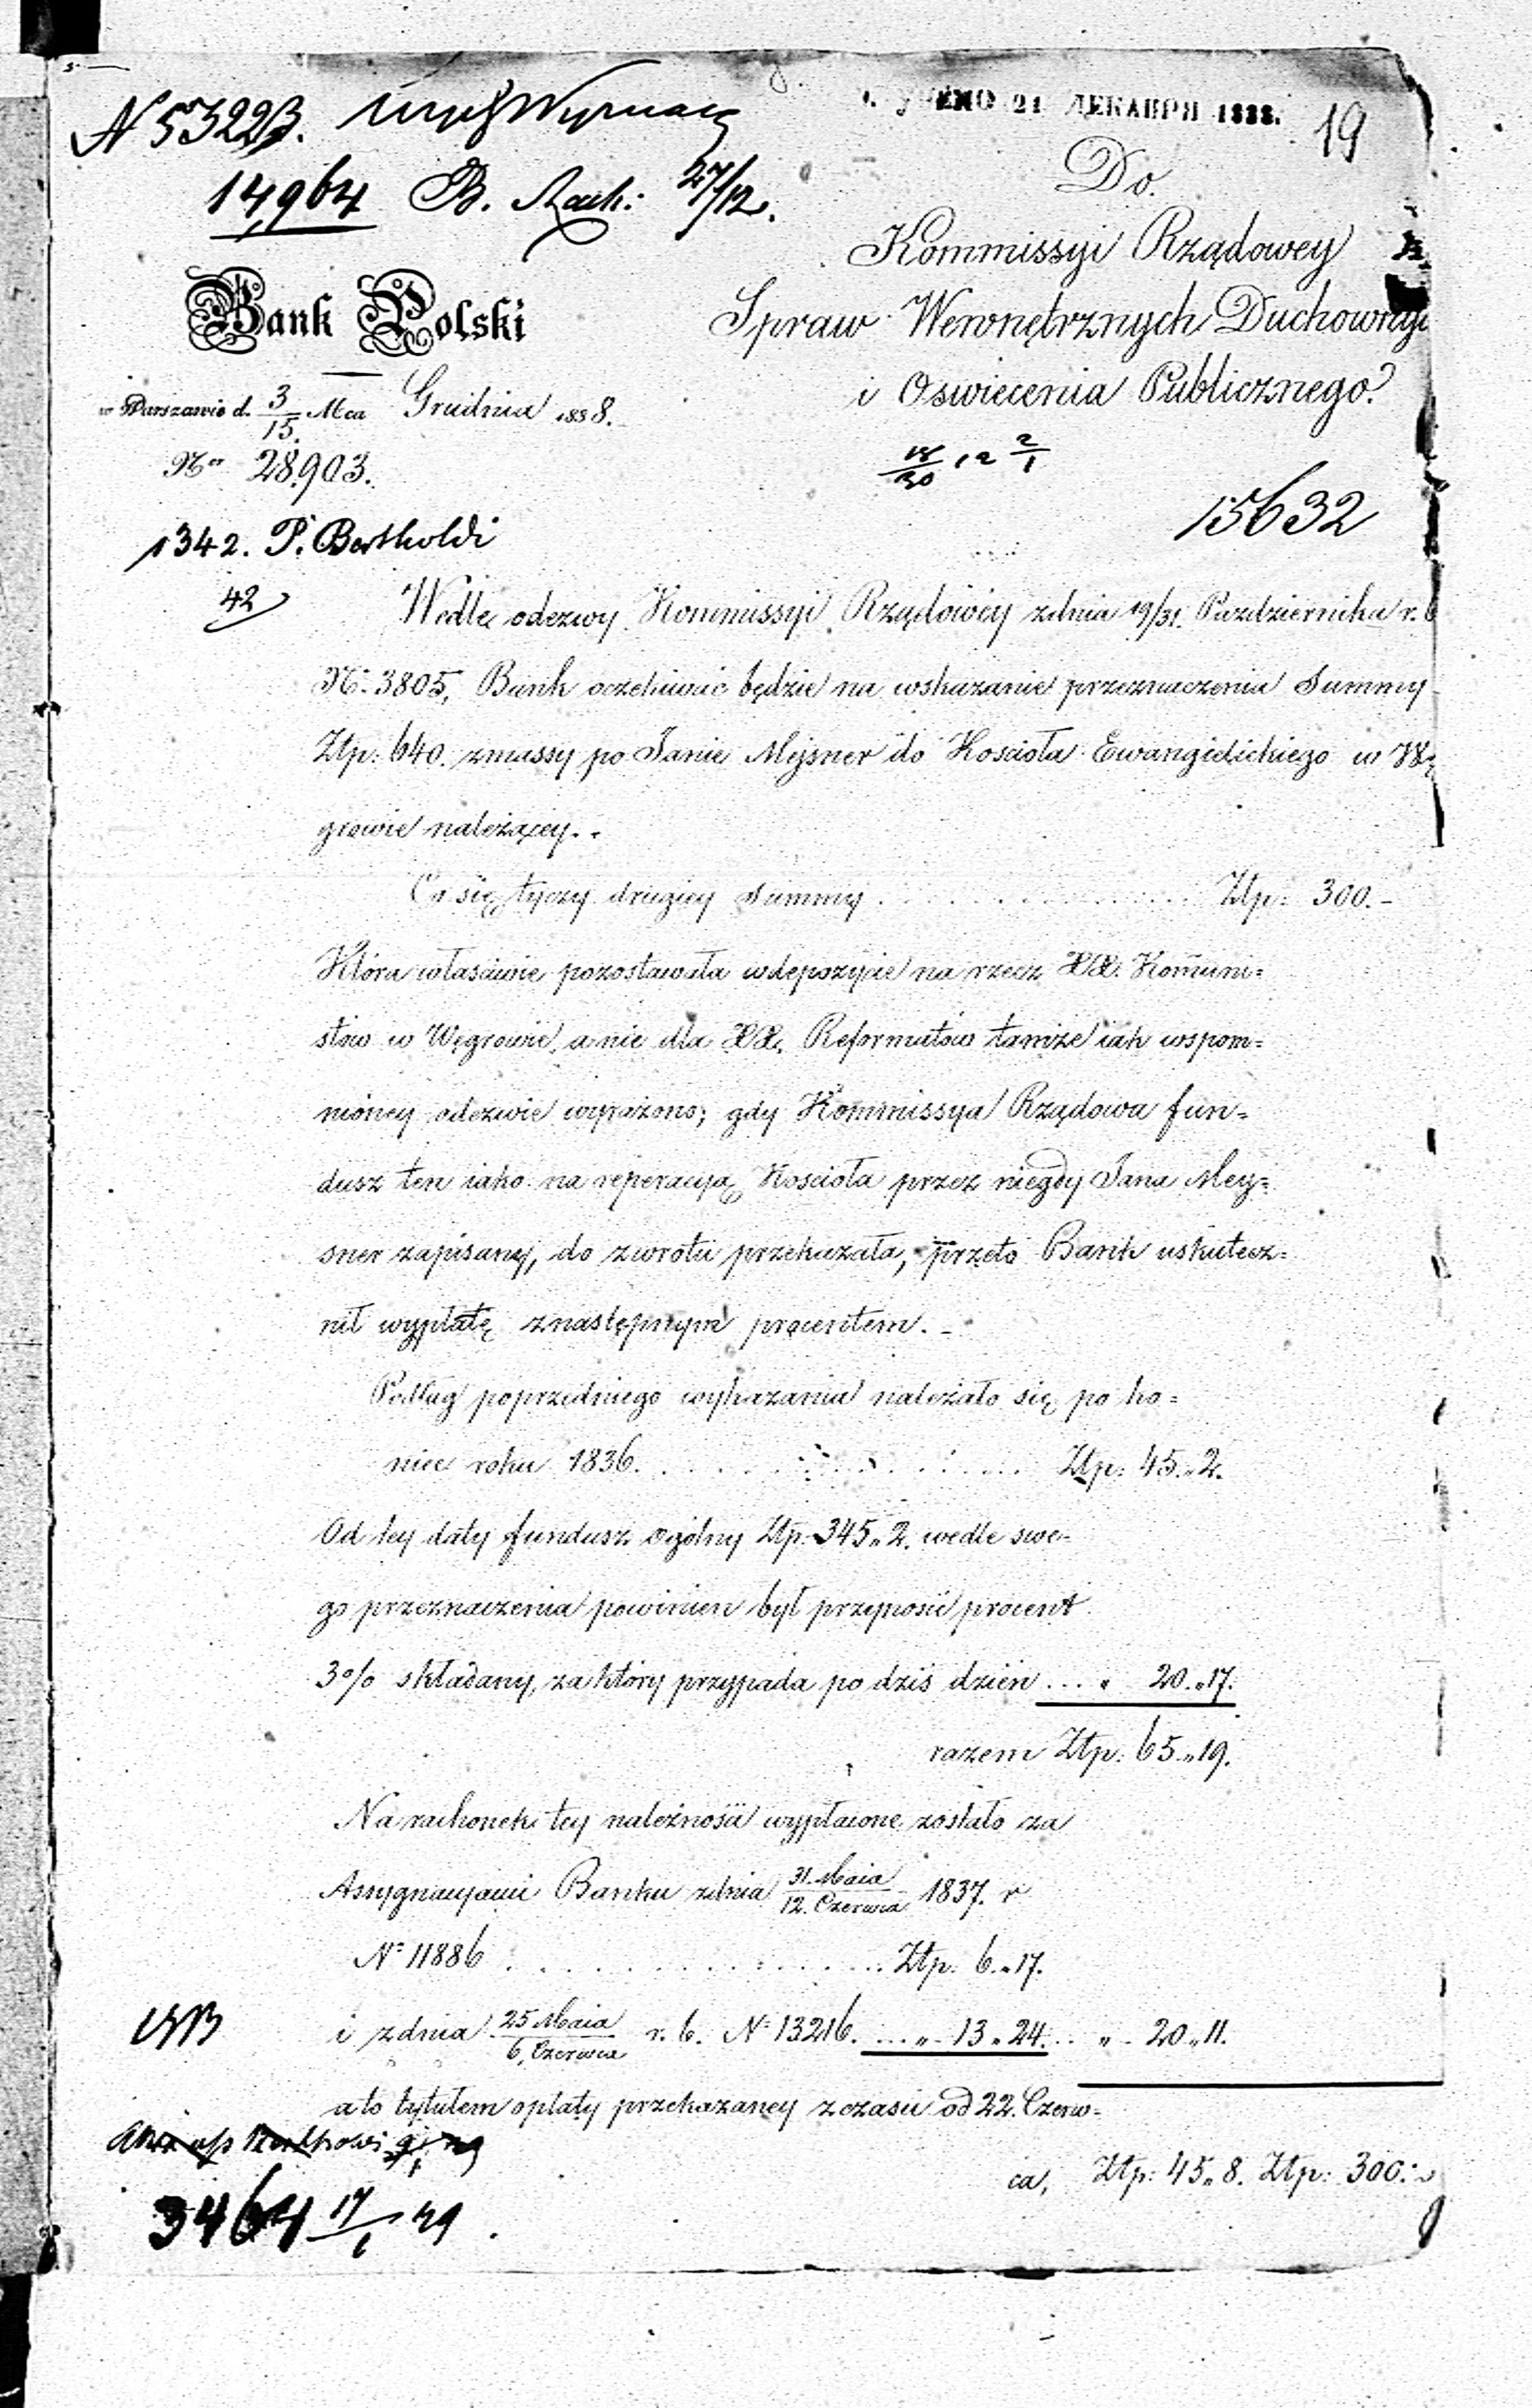 N 53223. Wyzn Wyznacz
ДЕКАБРЯ 1838.
19
14,964 B. Rach: 27/12.
Do
Kommissyi Rządowey
Spraw Wewnętrznych Duchownych
i Oswiecenia Publicznego.
Bank Polski
w Warszawie d. 3/15. Mca Grudnia 1838.
Nro 28,903.
18/30 12 2/1
15632
1342. P. Bertholdi
42
Wedle odezwy Kommissyi Rządowéy zdnia 19/31. Pazdziernika r. b
N. 3805, Bank oczekiwać będzie na wskazanie przeznaczenia Summy
Złp: 640. zmassy po Janie Mejsner do Kościoła Ewangielickiego w Wę
growie należącey.-
Co się tyczy drugiey Summy . . . . . . . Złp: 300.-
Która właściwie pozostawała wdepozycie na rzecz XX. Kom̄uni=
stów w Węgrowie, a nie dla XX. Reformatów tamże iak wspom=
nióney odezwie wyrażono; gdy Kommissya Rządowa fun=
dusz ten iako na reperacyą Kościoła przez niegdy Jana Mey=
sner zapisany, do zwrotu przekazała, przeto Bank uskutecz=
nił wypłatę znastępnym procentem. -
Podług poprzedniego wykazania należało się po ko=
niec roku 1836. . . . . . . . Złp: 45.„2.
Od tey daty fundusz ogólny Złp. 345„2. wedle swe-
go przeznaczenia powinien był przynosić procent
3% składany, za który przypada po dziś dzień ... „ 20.„17.
razem Złp: 65.„19.
Na rachonek tey należności wypłacone zostało za
Assygnacyami Banku zdnia 31. Maia/12. Czerwca 1837. r
N= 11886 . . . . . . . Złp. 6.„17.
i zdnia 25 Maia/6. Czerwca r. b. N= 13216. ... „ 13„24. .. „ 20„11.
a to tytułem opłaty przekazaney z czasu od 22. Czerw=
ca, Złp: 45„8. Złp: 300.
3464 17/1 39